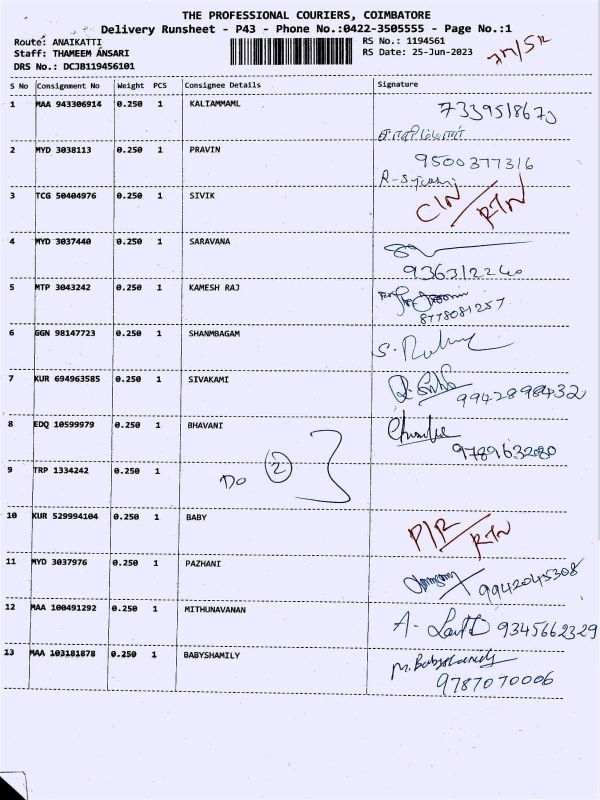 THE PROFESSIONAL COURIERS, COIMBATORE
Delivery Runsheet - P43 - Phone No.:0422-3505555 - Page No.:1
Route: ANAIKATTI
Staff: THAMEEM ANSARI
DRS No.: DCJB119456101
RS No.: 1194561
RS Date: 25-Jun-2023
S No Consignment No Weight PCS Consignee Details Signature
1 MAA 943306914 0.250 1 KALIAMMAML
2 MYD 3038113 0.250 1 PRAVIN 9500377316
3 TCG 50404976 0.250 1 SIVIK RTN
4 MYD 3037440 0.250 1 SARAVANA
936312240
5 MTP 3043242 0.250 1 KAMESH RAJ
8778081257
6 GGN 98147723 0.250 1 SHANMBAGAM
7 KUR 694963585 0.250 1 SIVAKAMI 9942898432
8 EDQ 10599979 0.250 1 BHAVANI
9789163280
9 TRP 1334242 0.250 1 Do 2
10 KUR 529994104 0.250 1 BABY RTN
11 MYD 3037976 0.250 1 PAZHANI 9942045308
12 MAA 100491292 0.250 1 MITHUNAVANAN A- 9345662329
13 MAA 103181878 0.250 1 BABYSHAMILY
9787070006